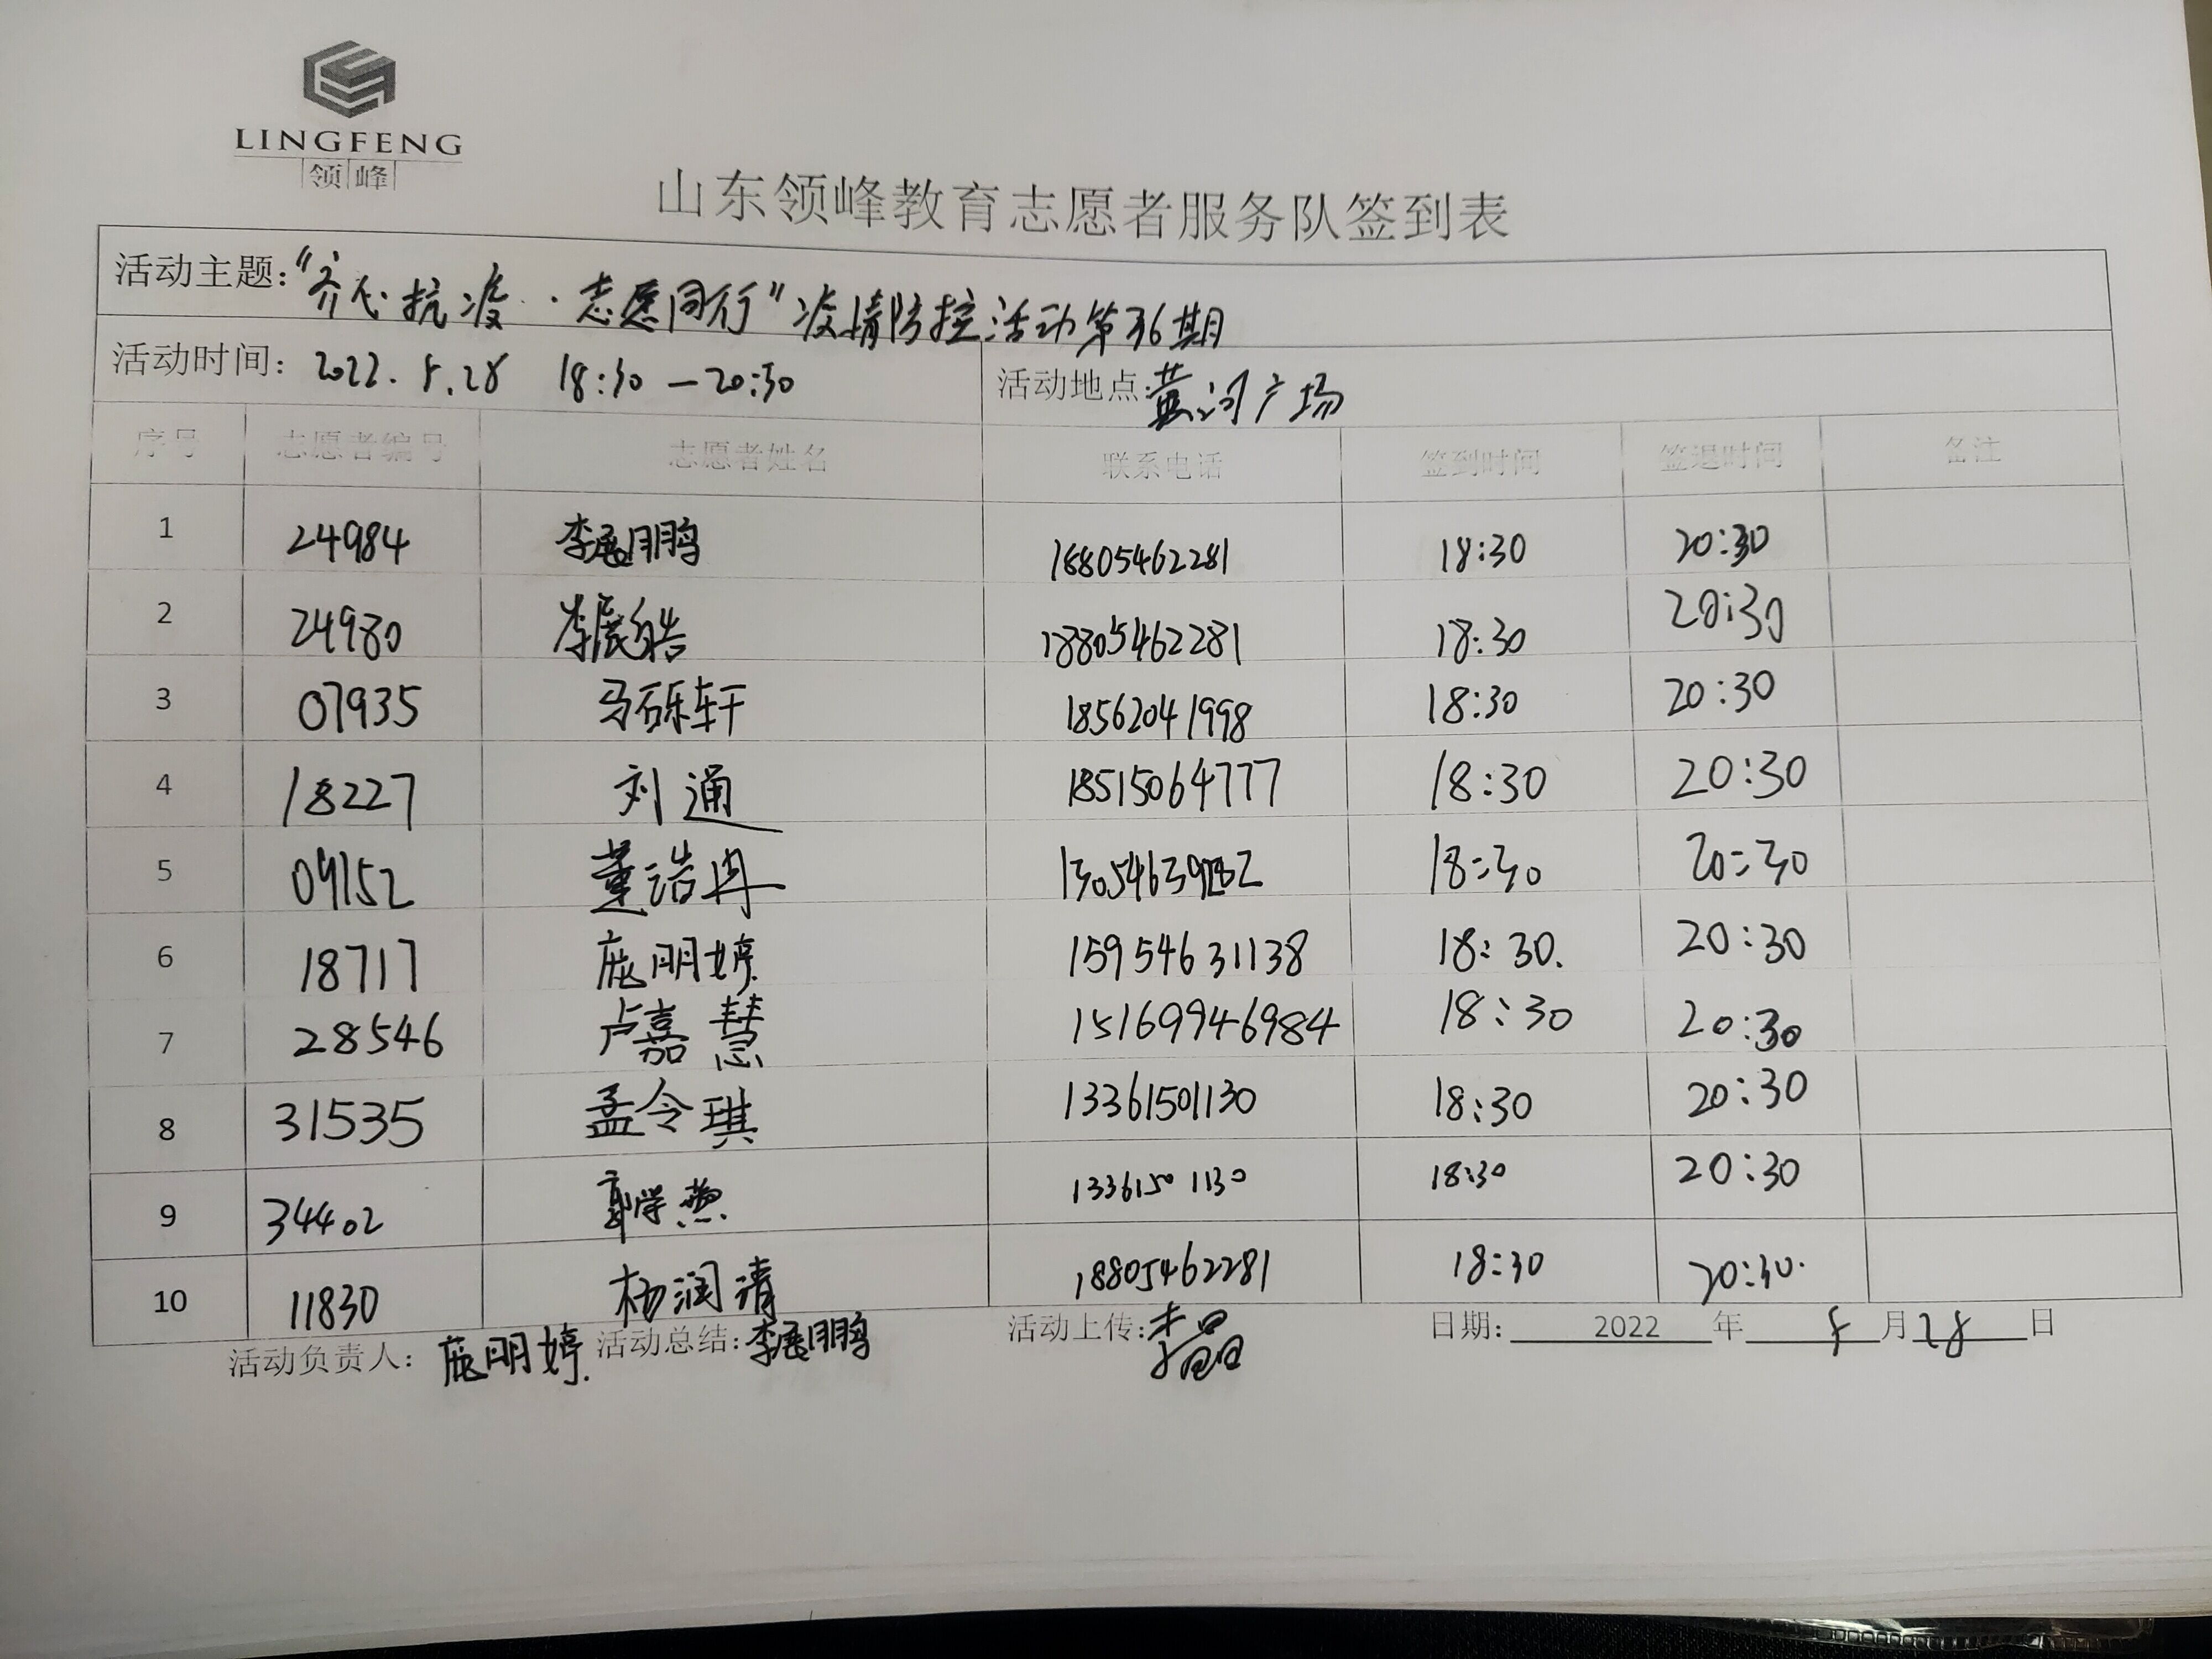 LINGFENG
领峰
山东领峰教育志愿者服务队签到表
活动主题：“齐心抗疫··志愿同行”疫情防控活动第36期
活动时间：2022.5.28 18:30—20:30 活动地点：黄河广场
序号 志愿者编号 志愿者姓名 联系电话 签到时间 签退时间 备注
1 24984 李展鹏 18805462281 18:30 20:30
2 24980 李展皓 18805462281 18:30 20:30
3 07935 马砾轩 18562041998 18:30 20:30
4 18227 刘通 18515064777 18:30 20:30
5 09152 董浩冉 18:30 20:30
6 18717 庞明婷 15954631138 18:30. 20:30
7 28546 卢嘉慧 15169946984 18:30 20:30
8 31535 孟令琪 13361501130 18:30 20:30
9 34402 郭学燕 13361501130 18:30 20:30
10 11830 杨润清 18805462281 18:30 20:30.
活动负责人：庞明婷. 活动总结：李展鹏 活动上传：李晶 日期：2022年5月28日